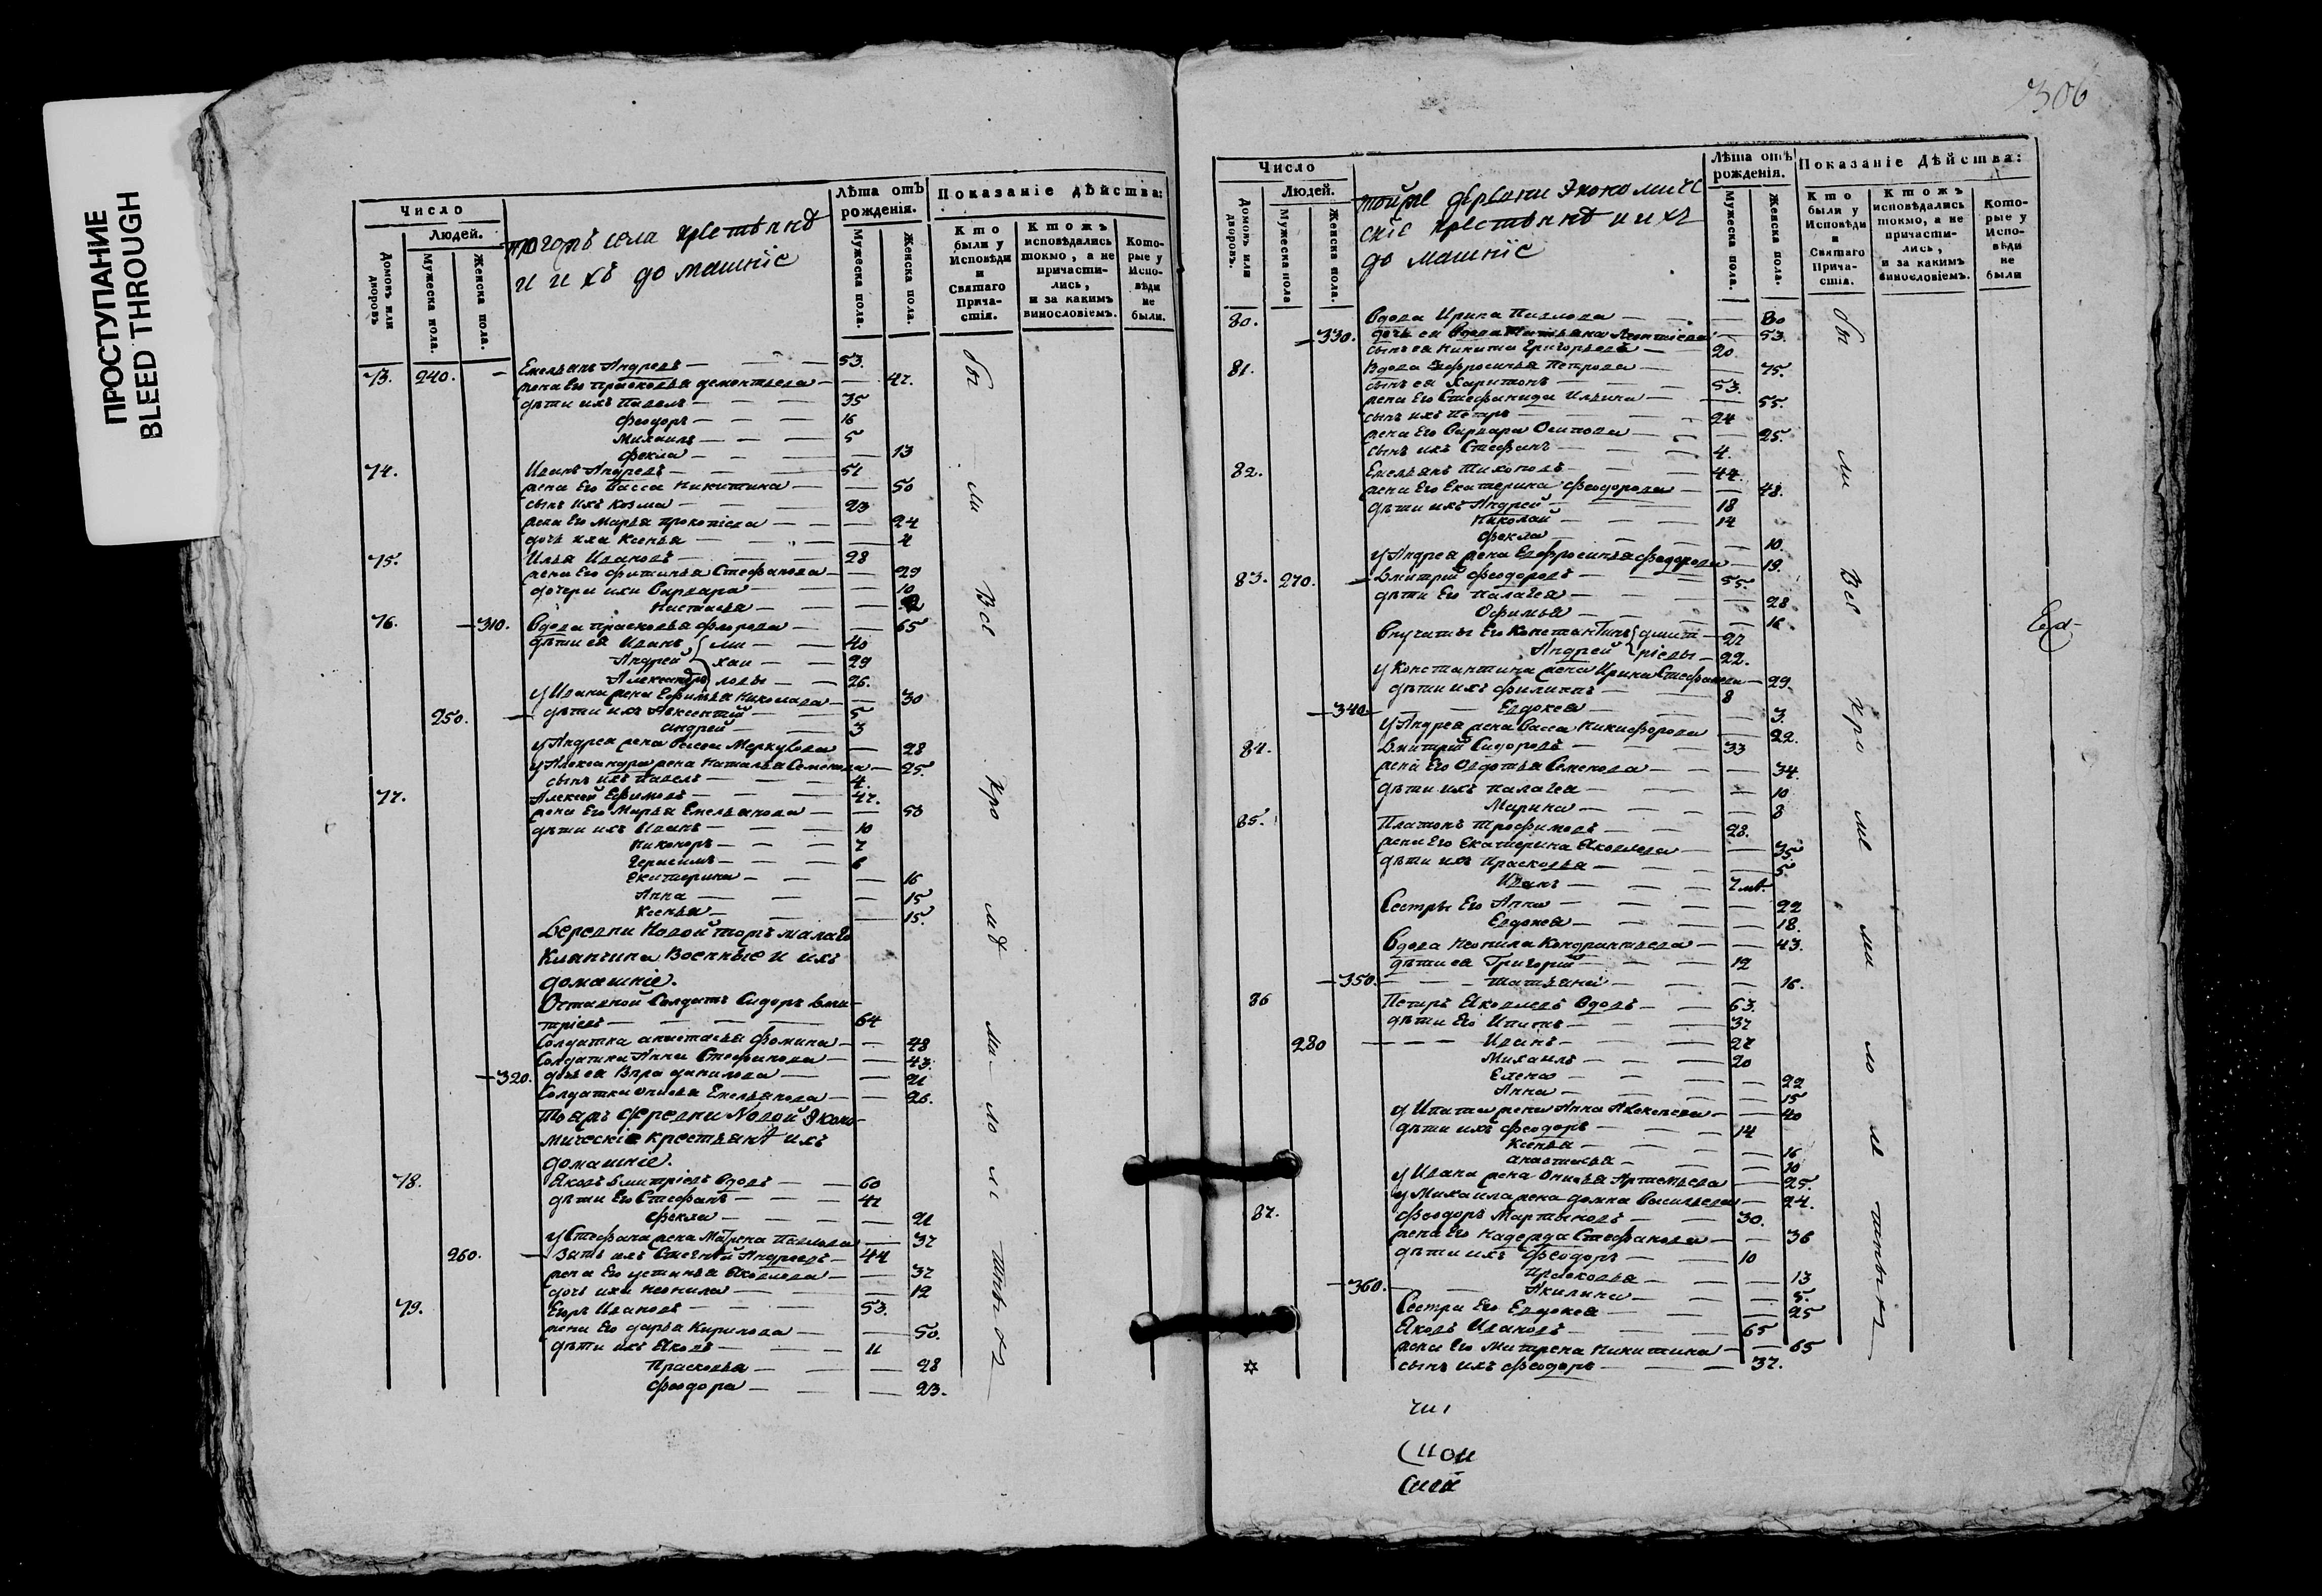 ПРОСТУПАНИЕ
BLEED THROUGH
Число
Людей.
Домовъ или дворовъ
Мужеска пола.
Женска пола.
тогожъ села крестьянѣ
и ихъ домашніе
Лѣта отъ рожденія.
Мужеска пола.
Женска пола.
Показаніе дѣйства:
Кто были у Исповѣди и Святаго Прича-стія.
Ктожъ исповѣдались токмо, а не причасти-лись, и за какимъ винословіемъ.
Кото-рые у Испо-вѣди не были.
73. 240. Емельянъ Андреевъ 53.
жена Его Прасковья дементьева 47.
дѣти ихъ Павелъ 35
Феодоръ 16
Михаилъ 5
Фекла 13
74. Иванъ Андреевъ 51
жена Его Васса Никитина 50
сынъ ихъ Козма 23
жена Его Марья Прокопіева 24
дочь ихъ Ксенья
75. Илья Ивановъ 28
жена Его Фотинья Стефанова 29
дочери ихъ Варвара 10
Настасья
76. 310. Вдова Прасковья Флорова 65
дѣти ея Иванъ ми 40
Андрей хаи 29
Александръ ловы 26.
у Ивана жена Ефимья Николаева 30
250. дѣти ихъ Авксентій 5
Андрей 3
у Андрея жена Меркулова 28
у Александра жена Наталья Семенова 25.
сынъ ихъ Павелъ 4.
77. Алексей Ефимовъ 47.
жена Его Марья Емельянова 50
дѣти ихъ Иванъ 10
Никоноръ 7
Герасимъ 6
Екатерина 16
Анна 15
Ксенья 15.
Деревни Новой тожъ малаго
Клянчина Военные и ихъ
домашніе.
Отставной Солдатъ Сидоръ Дми-
тріевъ 64
Солдатка анастасья Фомина 48
Солдатка Анна Стефанова 43.
320. дочь ея Вѣра данилова 21
Солдатка Емельянова 26.
Тояжъ деревни Новой Эконо-
мическіе крестьянѣ ихъ
домашніе.
78. Яковъ Дмитріевъ вдовъ 60
дѣти Его Стефанъ 42
Фекла 21
у Стефана жена Матрена Павлова 37
260. Зять ихъ Андреевъ 44
жена Его устинья Яковлева 37
дочь ихъ Неонила 12
79. Егоръ Ивановъ 53.
жена Его дарья Кирилова 50.
дѣти ихъ Яковъ 11
Прасковья 28
Феодора 23.
бы
ли
Все
Кро
мѣ
ма
ло
лѣ
тныхъ
306
Число
Людей.
Домовъ или дворовъ.
Мужеска пола
Женска пола.
тойже деревни Экономиче
скіе крестьянѣ и ихъ
домашніе
Лѣта отъ рожденія.
Мужеска пола.
Женска пола.
Показаніе Дѣйства:
Кто были у Исповѣди и Святаго Прича-стія.
Ктожъ исповѣдались токмо, а не причасти-лись, и за какимъ винословіемъ.
Кото-рые у Испо-вѣди не были
80. Вдова Ирина Павлова 80
330. дочь ея вдова Татьяна Леонтіева 53.
сынъ ея Никита Григорьевъ 20.
81. Вдова Евфросинья Петрова 75.
сынъ ея Харитонъ 53.
жена Его Стефанида Ильина 55.
сынъ ихъ Петръ 24
жена Его Варвара Осипова 25.
сынъ ихъ Стефанъ 4.
82. Емельянъ Тихоновъ 44.
жена Его Екатерина Феодорова 48.
дѣти ихъ Андрей 18
Николай 14
Фекла 10.
у Андрея жена Евфросинья Феодорова 19.
83. 270. Дмитрій Феодоровъ 55.
дѣти Его Палагея 28
Офимья 16
Внучаты Его Константинъ дмит 27
Андрей ріевы 22.
у Константина жена Ирина Стефанова 29.
дѣти ихъ Филиппъ 8
340. Евдокея 3.
у Андрея жена Васса Никифорова 22.
84. Дмитрій Сидоровъ 33
жена Его Овдотья Семенова 34.
дѣти ихъ Палагея 10
Марина 8
85. Платонъ Трофимовъ 28.
жена Его Екатерина Яковлева 35.
дѣти ихъ Прасковья 5
Иванъ
Сестры Его Анна 22
Евдокея 18.
Вдова Неонила Кондратьева 43.
дѣти ея Григорій 12
350. Татьяна 16.
86 Петръ Яковлевъ вдовъ 63.
дѣти Его Ипатъ 37
280 Иванъ 27
Михаилъ 20
Елена 22
Анна 15
у Ипата жена Анна 40
дѣти ихъ Феодоръ 14
Ксенья 16
анастасья 10
у Ивана жена Артемьева 25.
у Михаила жена домна Васильева 24.
87. Феодоръ Мартыновъ 30.
жена Его Надежда Стефанова 36
дѣти ихъ Феодоръ 10
Прасковья 13
360. Акилина 5.
Сестра Его Евдокея 25
Яковъ Ивановъ 65
жена Его Матрена Никитина 65
сынъ ихъ Феодоръ 37.
бы
ли
Все
Кро
мѣ
ма
ло
лѣ
тныхъ